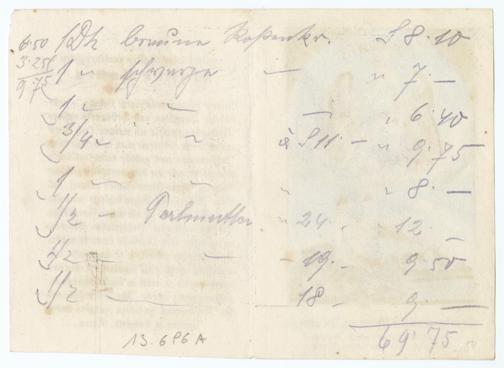 6·50 1 Dz braune Rosenkr. S 8·10
3·25
9·75 1 " schwarze — " 7·—
1 " — — " 6·40
3/4 " " à S 11·— " 9·75
1 " — " " 8·—
1/2 — Perlmutter " 24·" 12·—
1/2 — — " 19·— 9·50
1/2 — 18— 9·—
69·75
13.696A